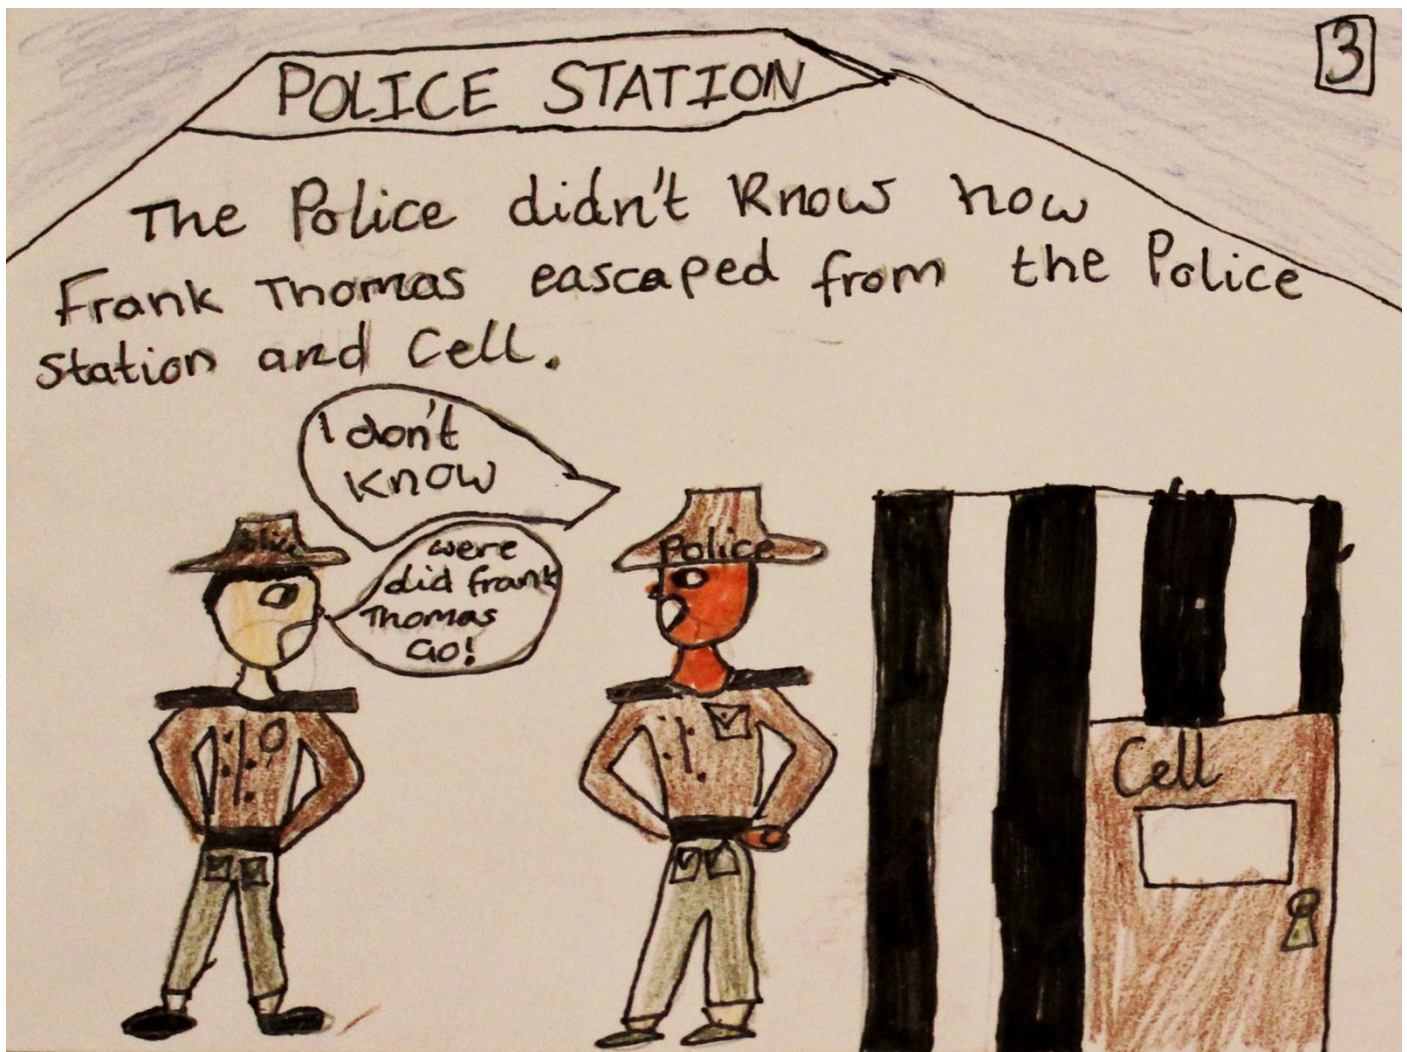 3
POLICE STATION
The Police didn't Know how
Frank Thomas eascaped from the Police
Station and Cell.
I don't
Know
were
did frank
Thomas
Go!
Police
Cell